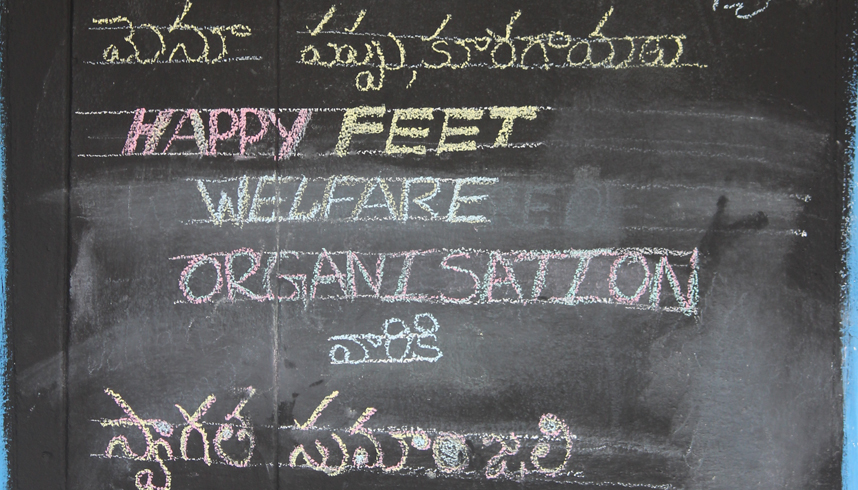 మెనూ పప్పు, కూరగాయలు
HAPPY FEET
WELFARE
ORGANISATION
వారికి
స్వాగత సుమాంజలి